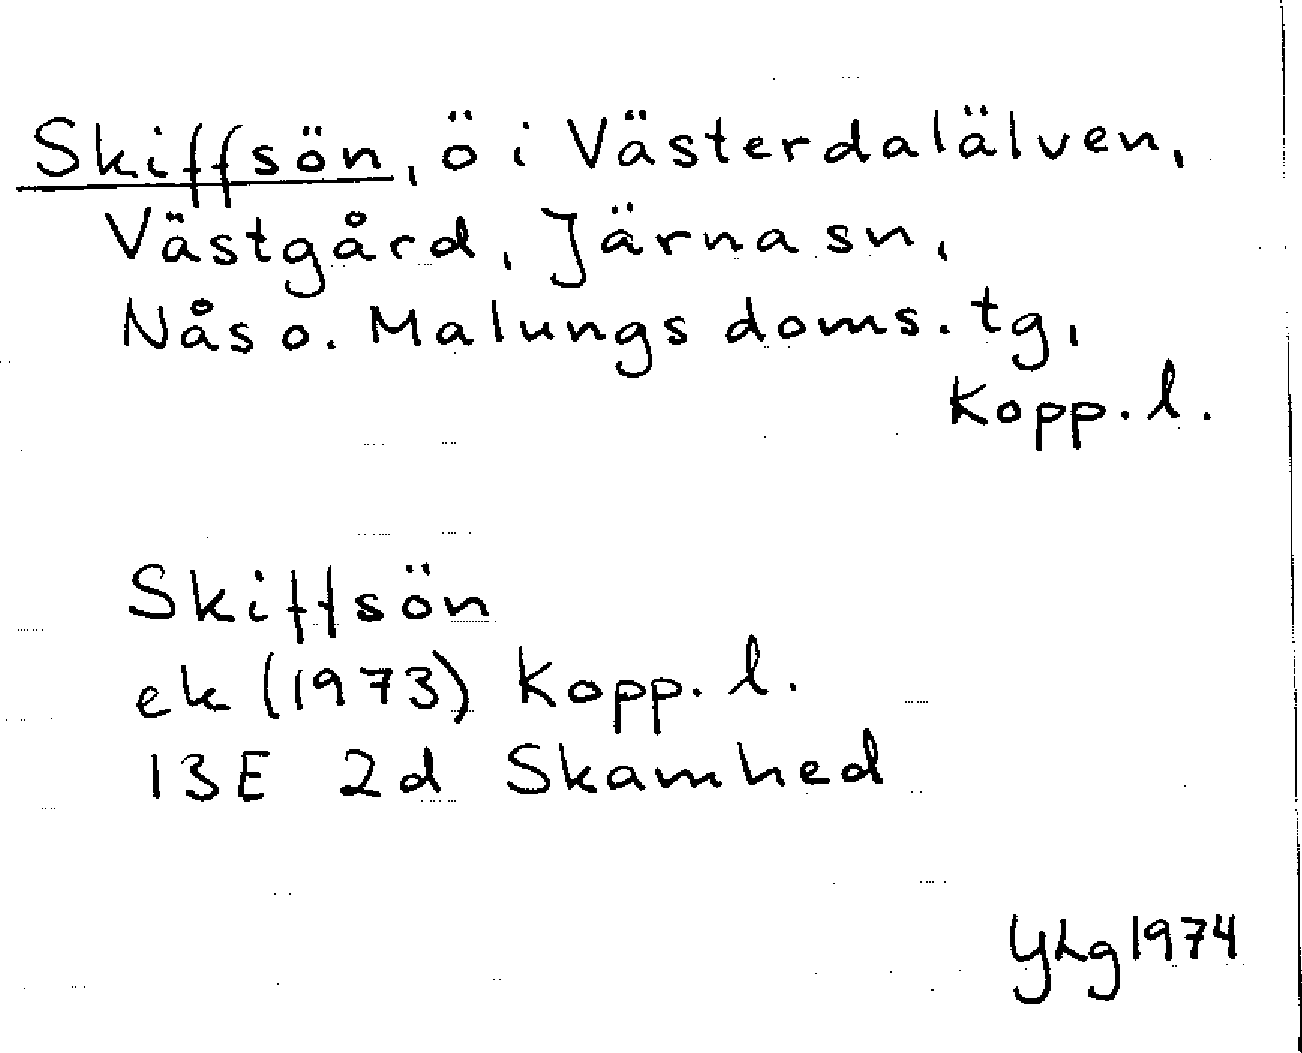 Skiffsön, ö i Västerdalälven,
Västgård, Järna sn,
Nås o. Malungs doms. tg,
Kopp. l.
Skiffsön
ek (1973) Kopp. l.
13E 2d Skamhed
YLg 1974